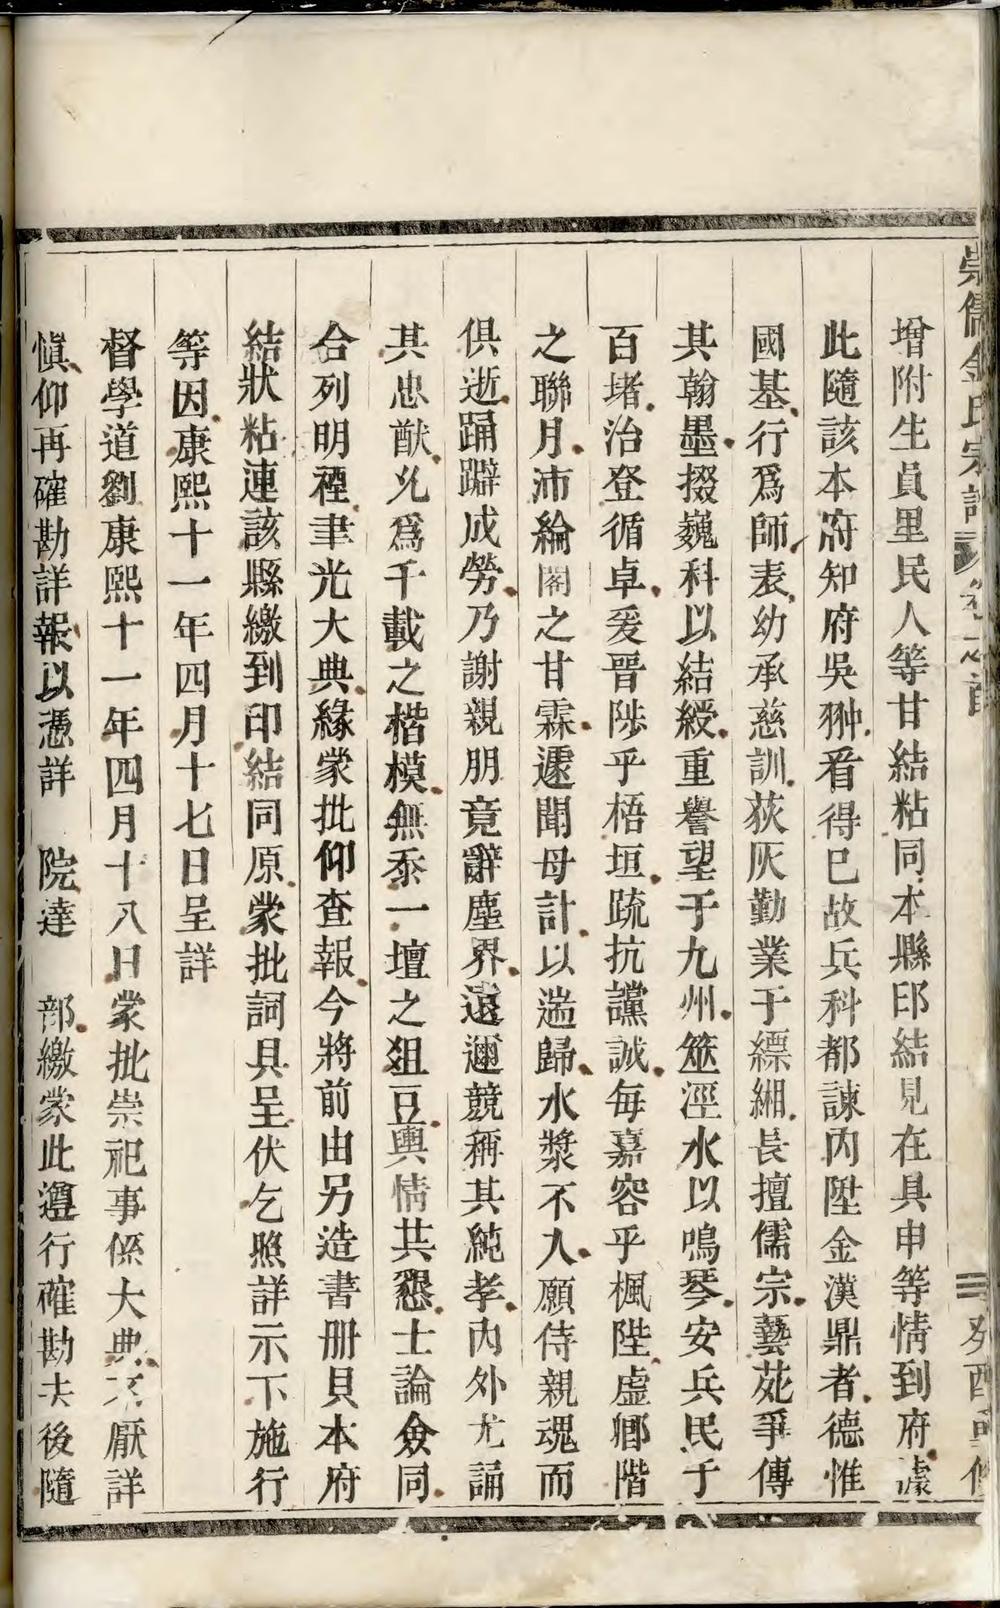 崇儒金氏宗譜 卷之首 癸酉重修
增附生員里民人等甘結粘同本縣印結見在具申等情到府據
此隨該本府知府吳翀看得已故兵科都諫內陞金漢鼎者德惟
國基行爲師表幼承慈訓荻灰勤業于縹緗長擅儒宗藝苑爭傳
其翰墨掇巍科以結綬重譽望于九州筮涇水以鳴琴安兵民于
百堵治登循卓爰晉陟乎梧垣疏抗讜誠每嘉容乎楓陛虛卿階
之聯月沛綸閣之甘霖遽聞母訃以遄歸水漿不入願侍親魂而
俱逝踊躃成勞乃謝親朋竟辭塵界遠邇競稱其純孝內外尤誦
其忠猷允爲千載之楷模無忝一壇之俎豆輿情共懇士論僉同
合列明禋聿光大典緣蒙批仰查報今將前由另造書册具本府
結狀粘連該縣繳到印結同原蒙批詞具呈伏乞照詳示下施行
等因康熙十一年四月十七日呈詳
督學道劉康熙十一年四月十八日蒙批崇祀事係大典不厭詳
愼仰再確勘詳報以憑詳 院達 部繳蒙此遵行確勘去後隨